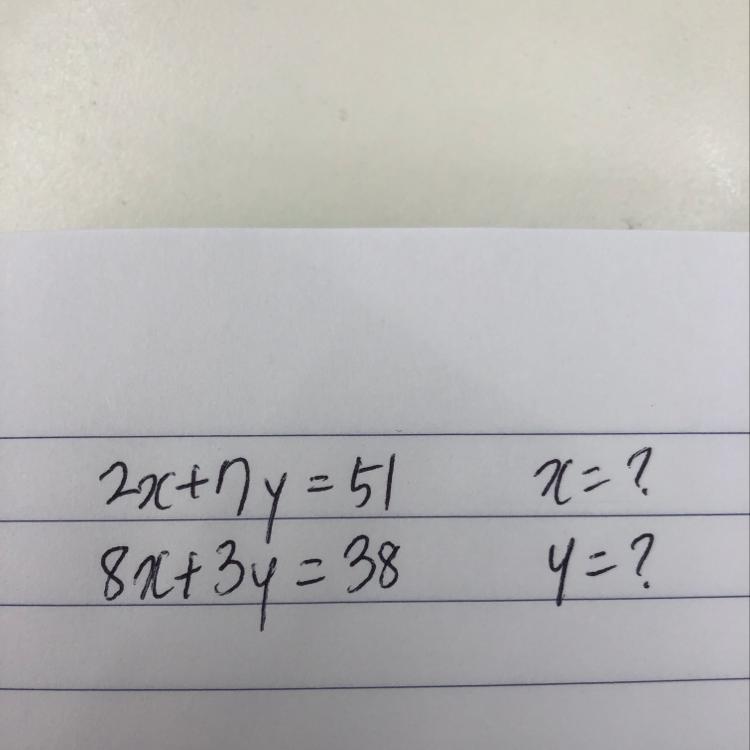 2x+7y=51 x=?
8x+3y=38 y=?